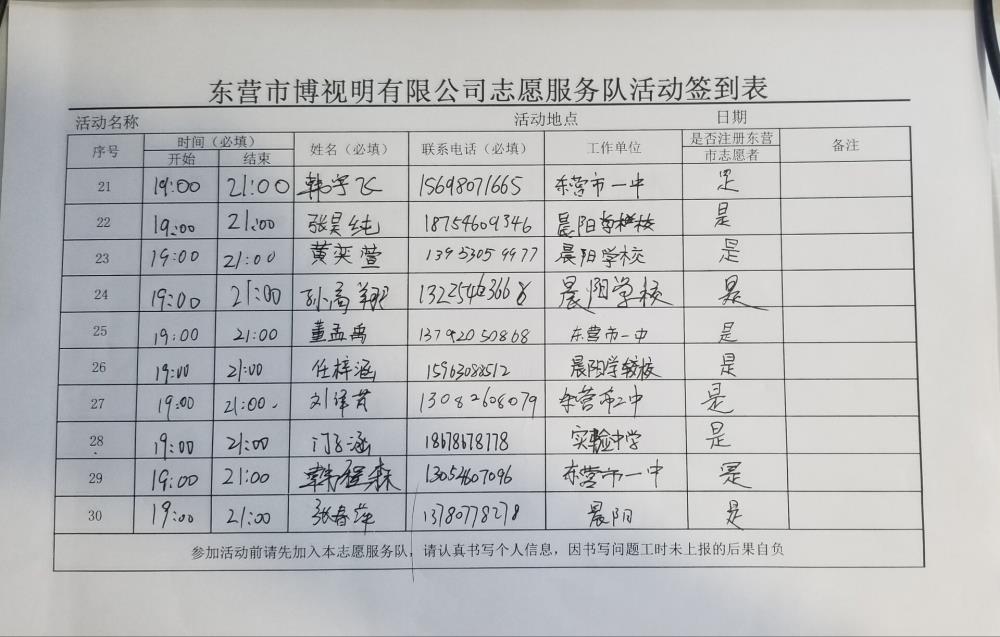 东营市博视明有限公司志愿服务队活动签到表
活动名称 活动地点 日期
序号 时间（必填） 姓名（必填） 联系电话（必填） 工作单位 是否注册东营市志愿者 备注
开始 结束
21 19:00 21:00 韩宇飞 15698071665 东营市一中 是
22 19:00 21:00 张昊纯 18754609346 晨阳学校 是
23 19:00 21:00 黄奕萱 13953059977 晨阳学校 是
24 19:00 21:00 孙高翔 晨阳学校 是
25 19:00 21:00 董孟禹 13792050868 东营市一中 是
26 19:00 21:00 任梓涵 15963088512 晨阳学校 是
27 19:00 21:00. 13082608079 东营市2中 是
28 19:00 21:00 18678678778 实验中学 是
29 19:00 21:00 韩程森 13054607096 东营市一中 是
30 19:00 21:00 张春萍 13780778278 晨阳 是
参加活动前请先加入本志愿服务队，请认真书写个人信息，因书写问题工时未上报的后果自负